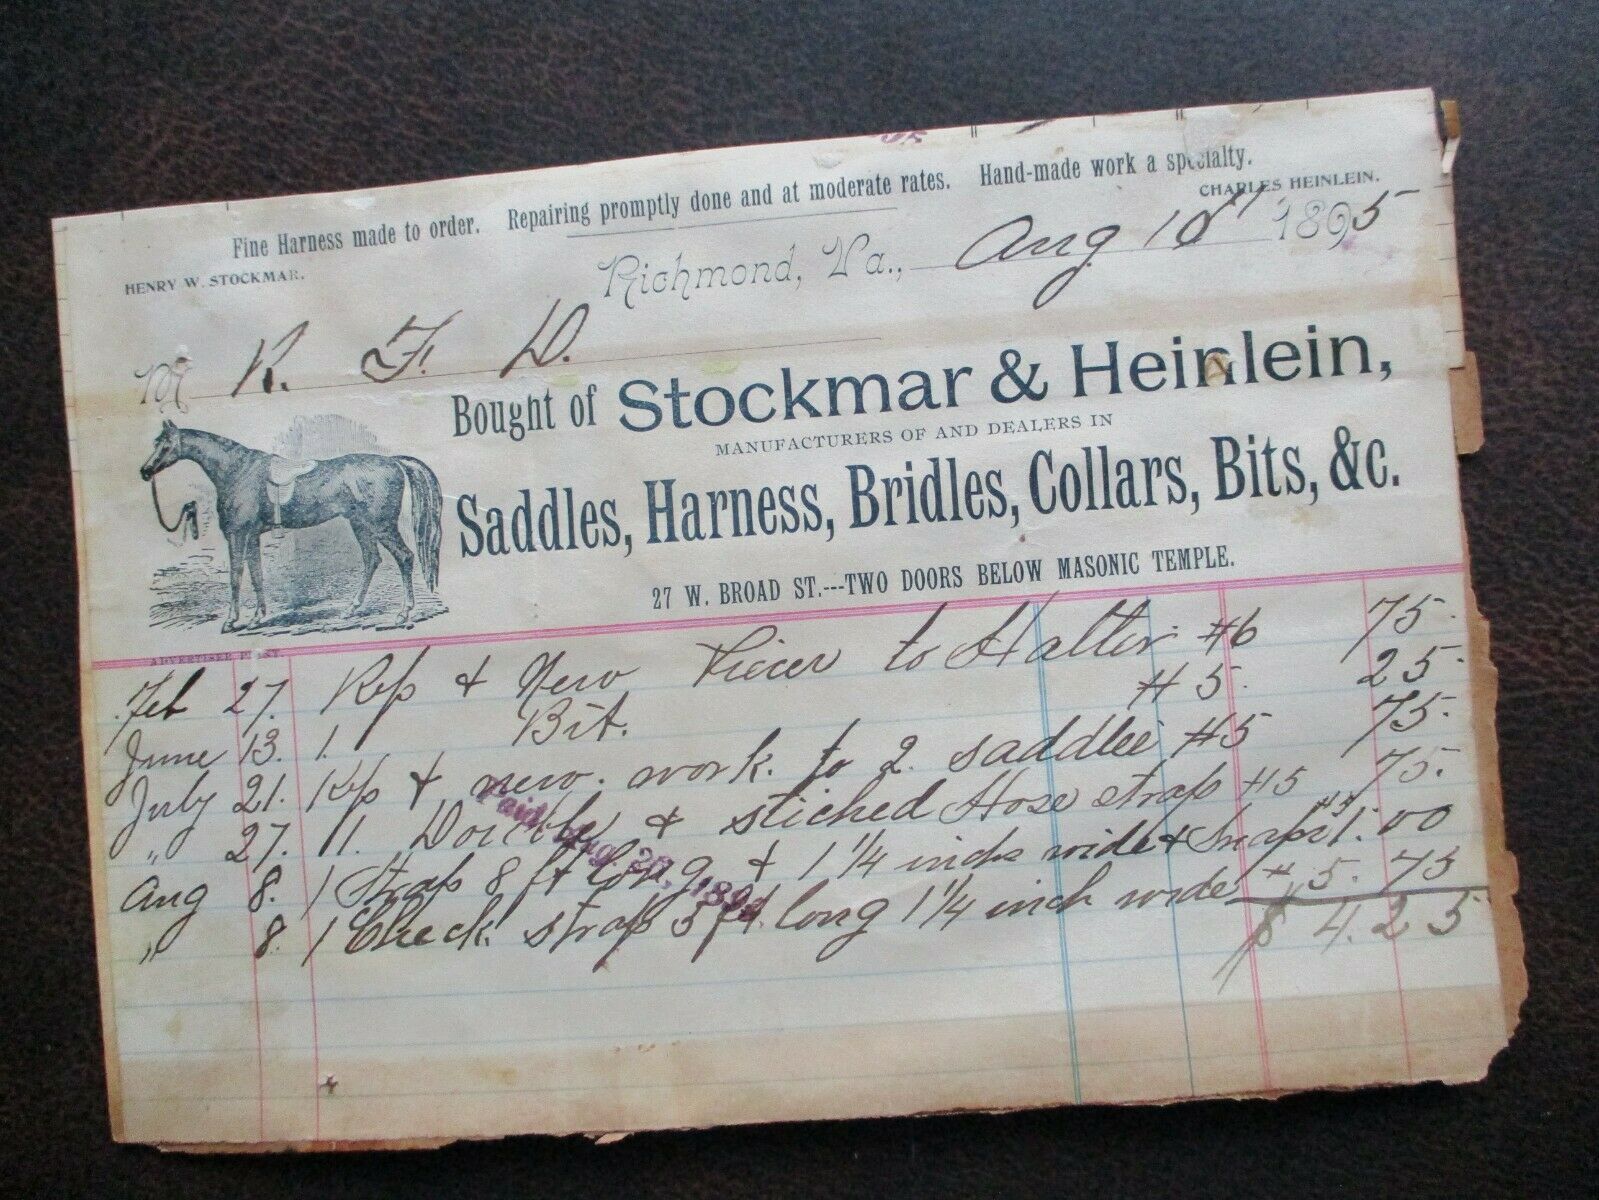 Fine Harness made to order. Repairing promptly done and at moderate rates. Hand-made work a specialty.
HENRY W. STOCKMAR. CHARLES HEINLEIN.
Richmond, Va., Aug 10" 1895
M R. F. D.
Bought of Stockmar & Heinlein,
MANUFACTURERS OF AND DEALERS IN
Saddles, Harness, Bridles, Collars, Bits, &c.
27 W. BROAD ST.---TWO DOORS BELOW MASONIC TEMPLE.
ADVERTISER PRINT.
Feb 27. Rep & New to Halter #6 75.
June 13. 1. Bit. #5. 25.
July 21. Rep & new work to 2 saddle #5 75.
" 27. 11. Double & stiched Hose strap #5 75.
Aug 8. 1 Strap 8 ft long & 1 1/4 inch wide & Snap 1.00
" 8. 1 Check strap 5 ft. long 1 1/4 inch wide #5. 75
$ 4.25
Paid Aug 20, 1895